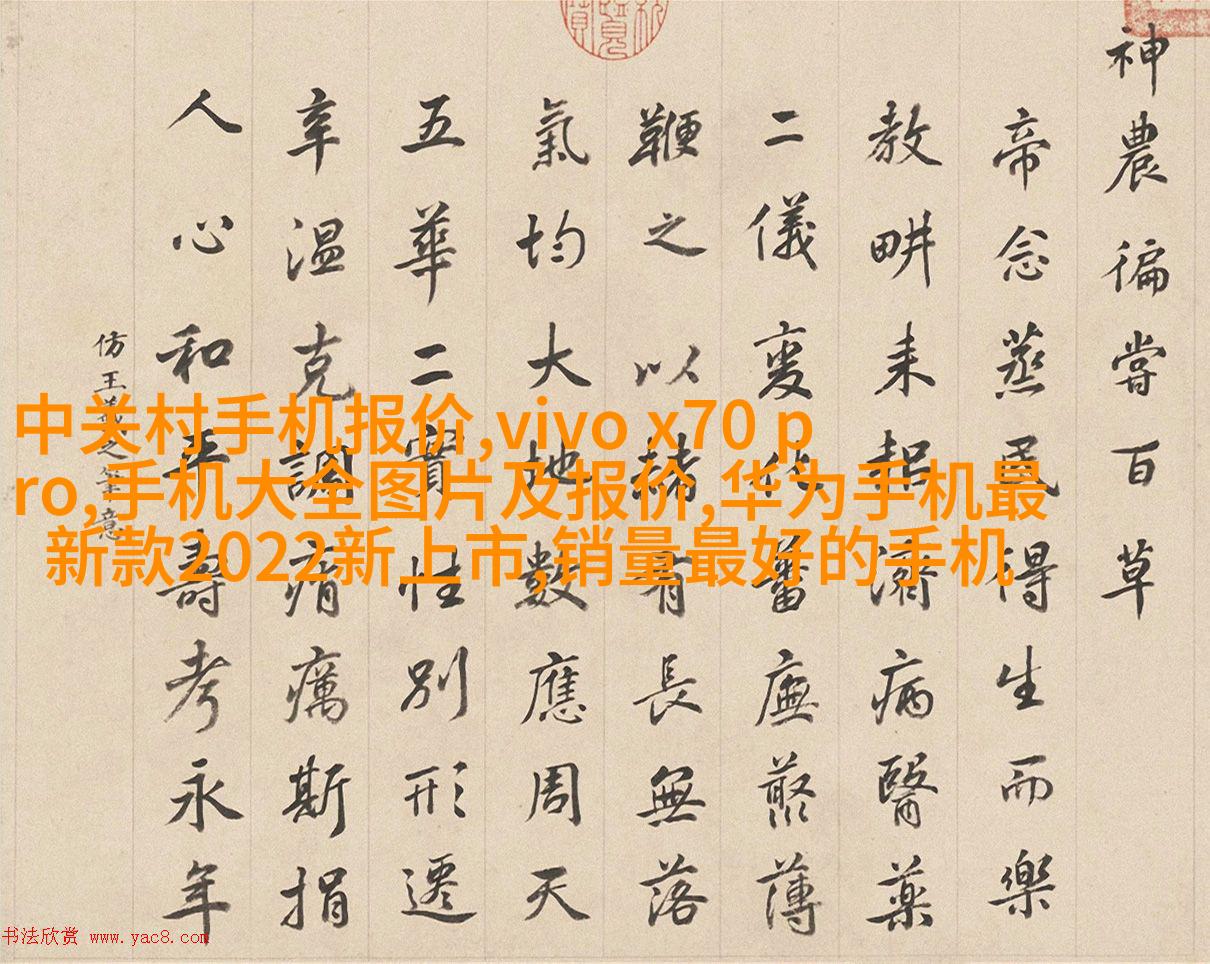 神農徧嘗百草
帝念蒸民得生而樂
教畊耒耜濟病醫藥
二儀變化蕃廡藂薄
鞭之以赭有長無落
氣均大地數應周天
五華二實性別形遷
辛温克調痟癘斯捐
人心和平壽考永年
仿王羲之筆意
中关村手机报价,vivo x70 p
ro,手机大全图片及报价,华为手机最
新款2022新上市,销量最好的手机
书法欣赏 www.yac8.com